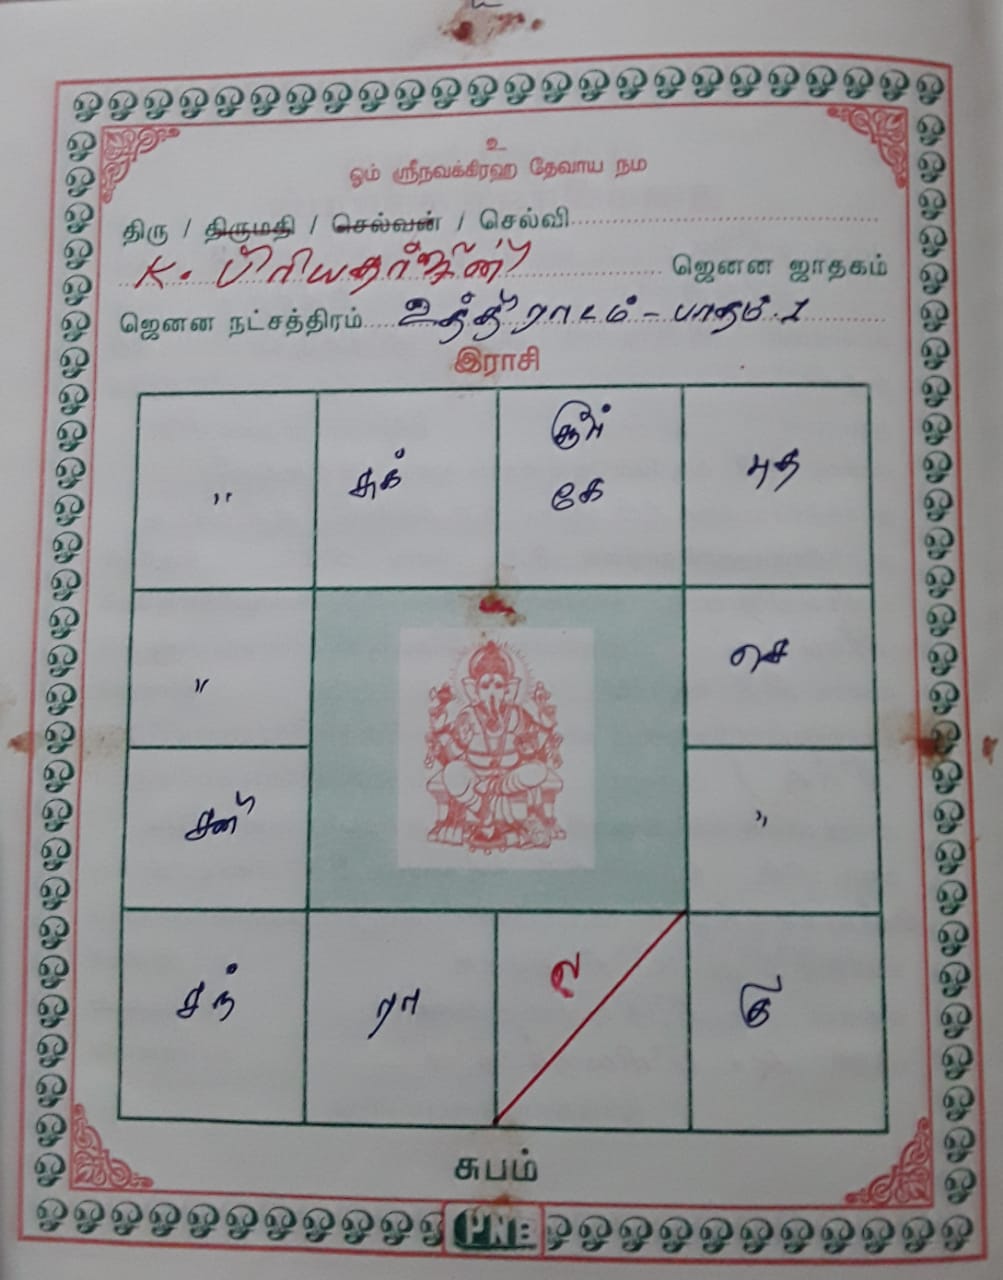 உ
ஓம் ஸ்ரீநவக்கிரஹ தேவாய நம
திரு / திருமதி / செல்வன் / செல்வி
K. பிரியதர்ஷினி ஜெனன ஜாதகம்
ஜெனன நட்சத்திரம் உத்திராடம் - பாதம். 1
இராசி
" சுக் சூரி புத
கே
" செ
சனி "
சந் ரா ல கு
சுபம்
PNB